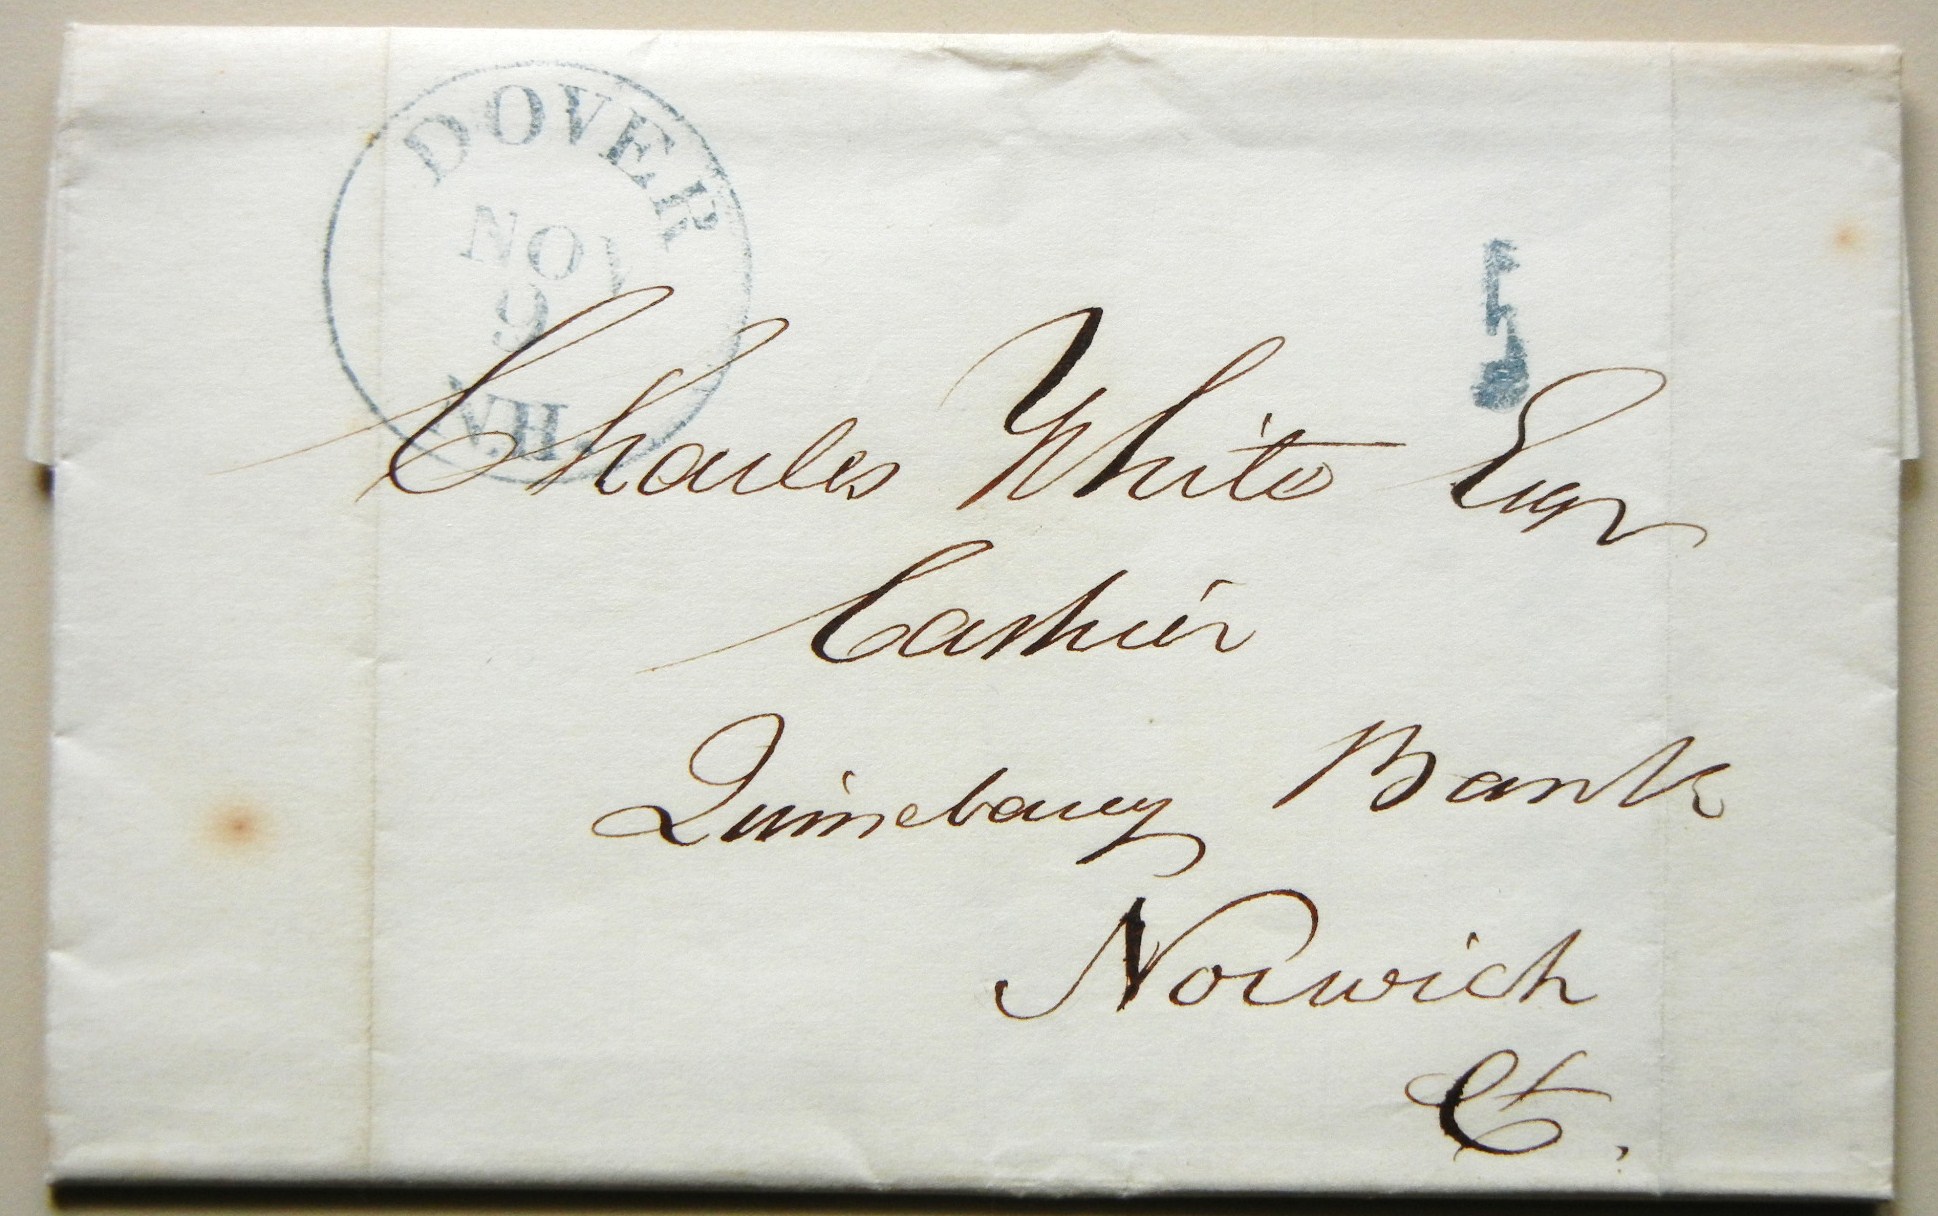 DOVER
NOV
9
N.H.
5
Charles White Esqr
Cashier
Quinebaug Bank
Norwich
Ct.